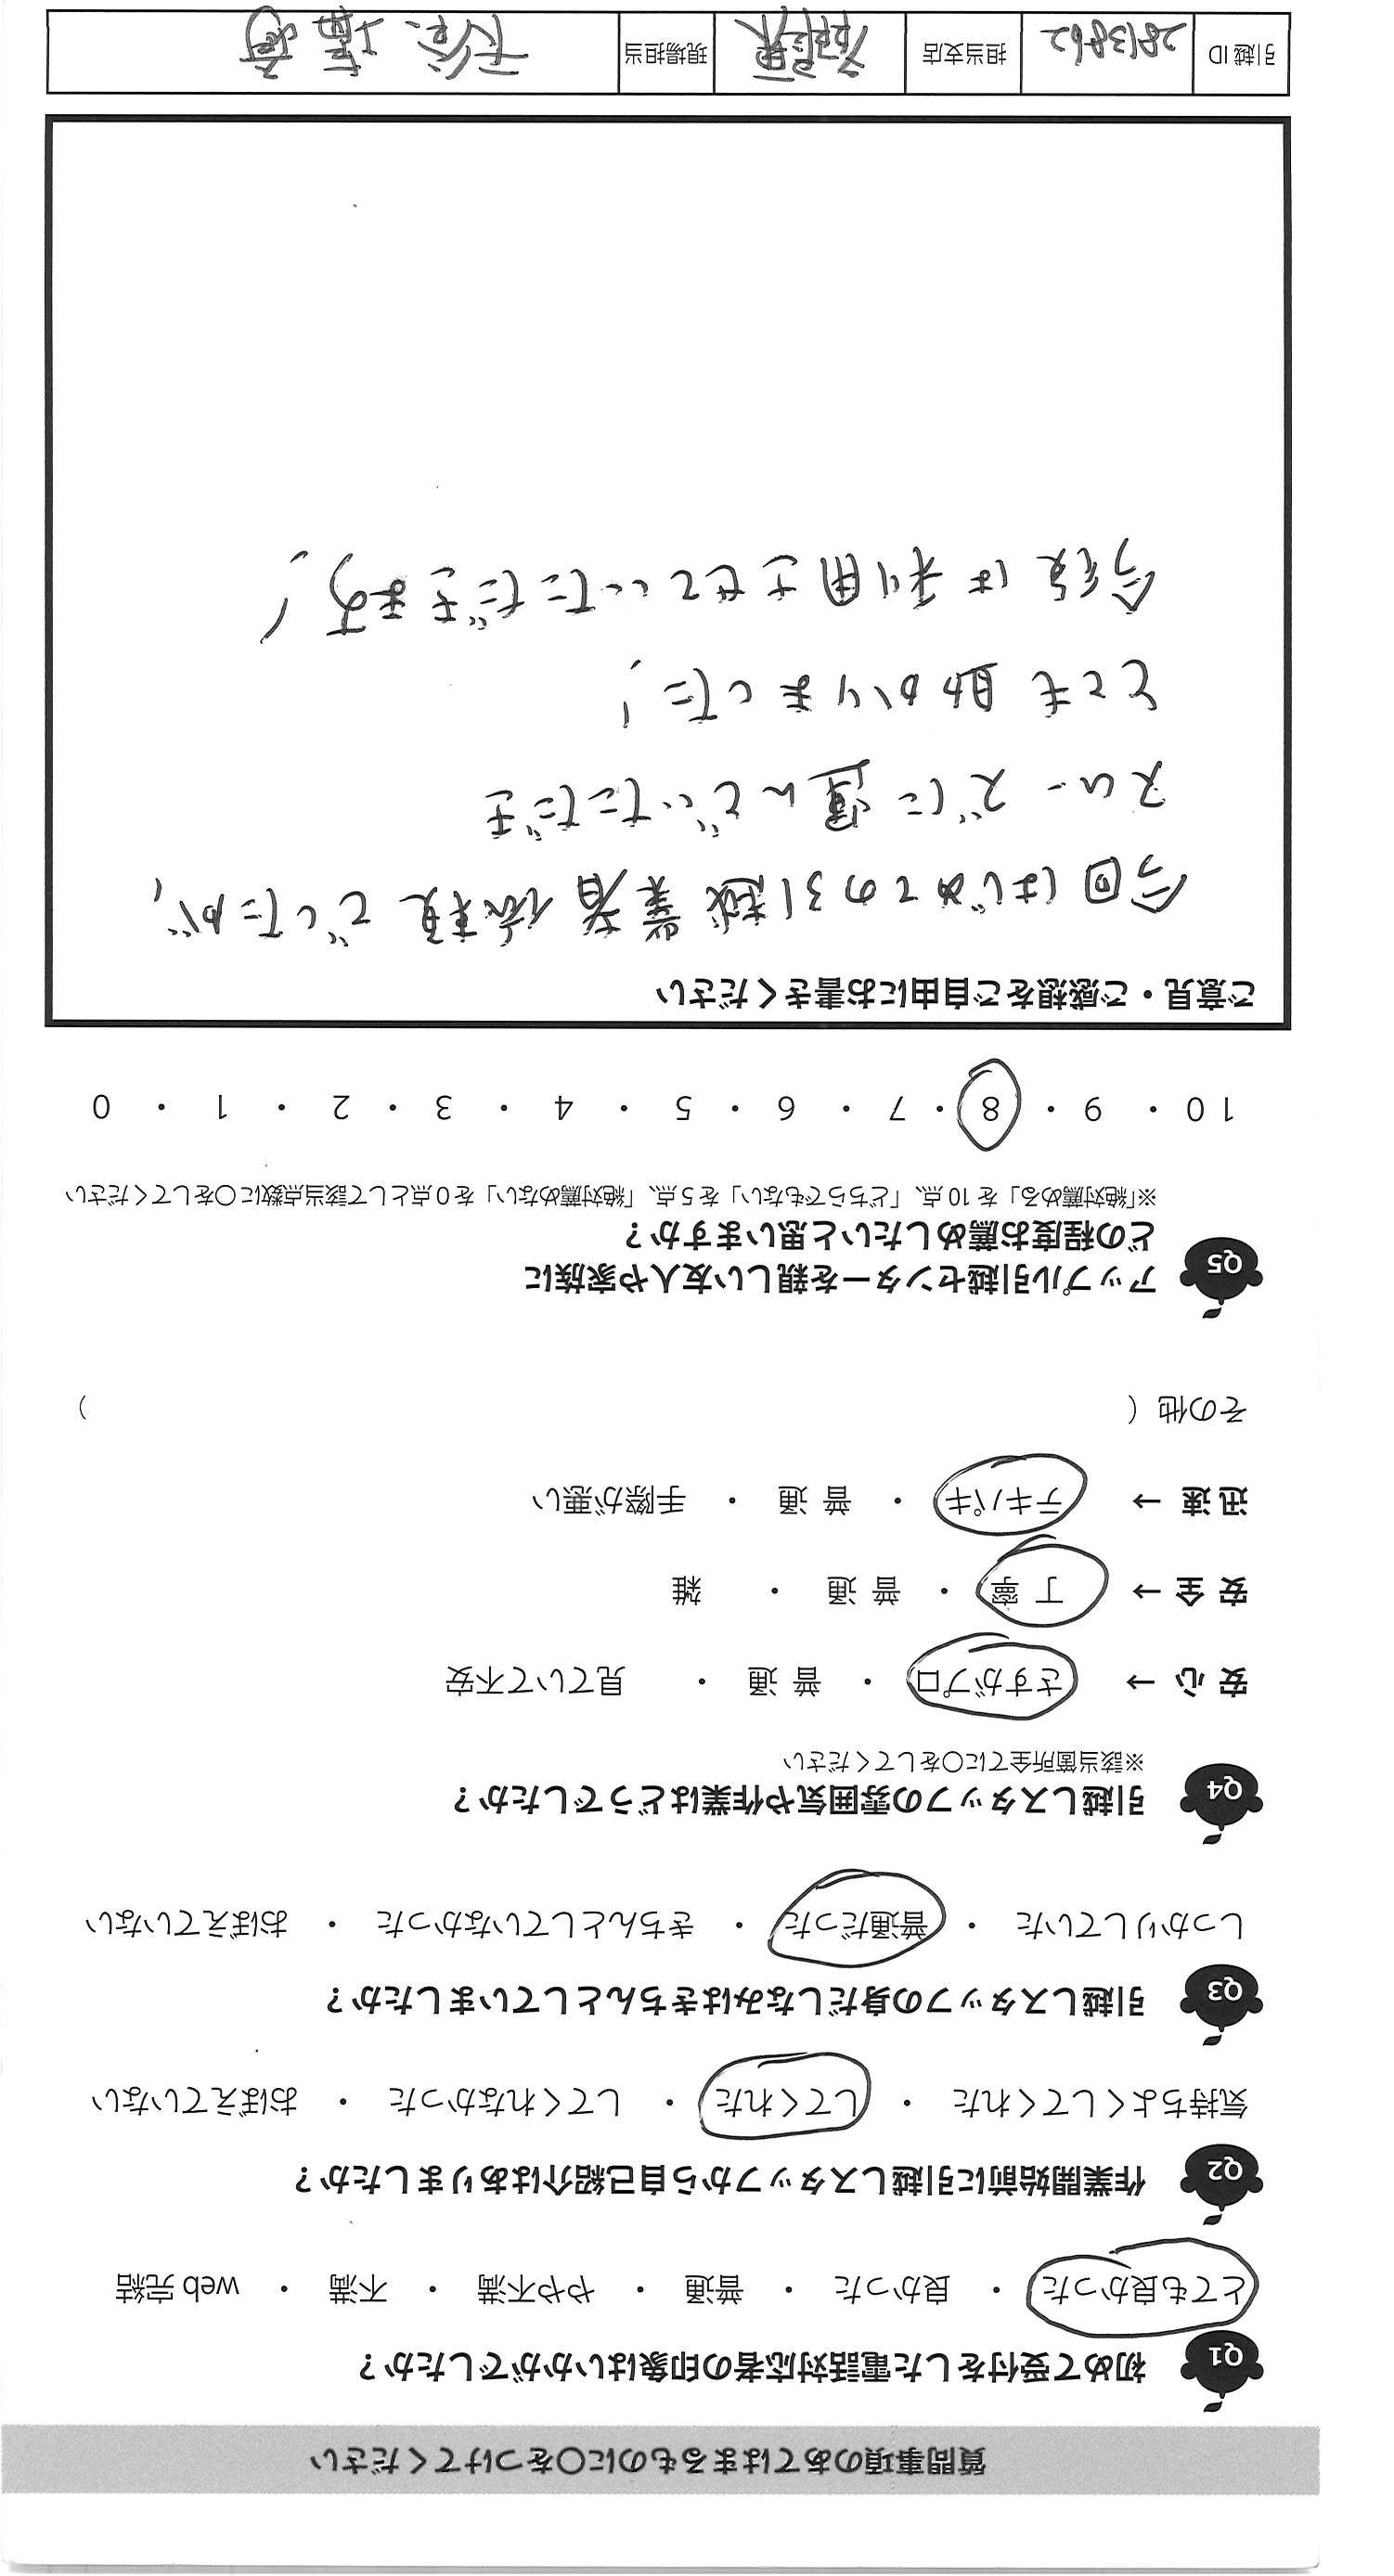 質問事項のあてはまるものに○をつけてください
Q1 初めて受付をした電話対応者の印象はいかがでしたか？
とても良かった ・ 良かった ・ 普通 ・ やや不満 ・ 不満 ・ web 完結
Q2 作業開始前に引越しスタッフから自己紹介はありましたか？
気持ちよくしてくれた ・ してくれた ・ してくれなかった ・ おぼえていない
Q3 引越しスタッフの身だしなみはきちんとしていましたか？
しっかりしていた ・ 普通だった ・ きちんとしていなかった ・ おぼえていない
Q4 引越しスタッフの雰囲気や作業はどうでしたか？
※該当箇所全てに○をしてください
安 心 → さすがプロ ・ 普 通 ・ 見ていて不安
安 全 → 丁 寧 ・ 普 通 ・ 雑
迅 速 → テキパキ ・ 普 通 ・ 手際が悪い
その他（ ）
Q5 アップル引越センターを親しい友人や家族に
どの程度お薦めしたいと思いますか？
※「絶対薦める」を 10 点、「どちらでもない」を 5 点、「絶対薦めない」を 0 点として該当点数に○をしてください
10 ・ 9 ・ 8 ・ 7 ・ 6 ・ 5 ・ 4 ・ 3 ・ 2 ・ 1 ・ 0
ご意見・ご感想をご自由にお書きください
今回はじめての引越業者依頼でしたが、
スムーズに運んでいただき
とても助かりました！
今後は利用させていただきます！
引越 ID 2813862 担当支店 現場担当